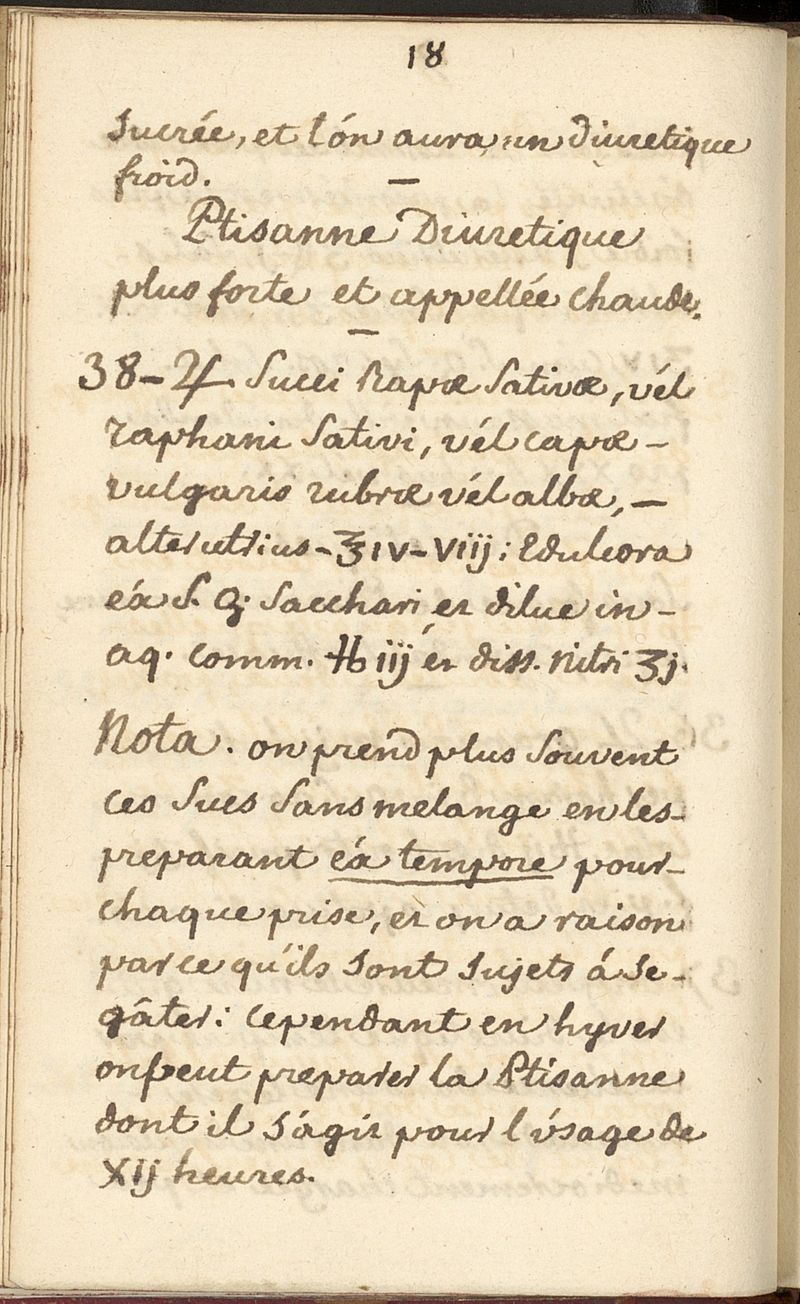 18
sucrée, et l'ón aura un diuretique
froid. —
Ptisanne Diuretique
plus forte et appellée chaude.
—
38 - ♃ Succi Rapæ Sativæ, vél
raphani Sativi, vél capæ -
vulgaris rubræ vél albæ, —
alterutrius - ℥ IV - Viij; Edulcora
éx S. q. Sacchari et dilue in -
aq. comm. ℔ iij ét diss. nitri ʒj.
Nota. on prend plus Souvent
ces Sucs Sans melange en les -
preparant éx tempore pour -
chaque prise, et on a raison
parce qu'ils sont sujets á se -
gâter: cependant en hyver
on peut preparer la Ptisanne
dont il s'agit pour l'úsage de
XIJ heures.